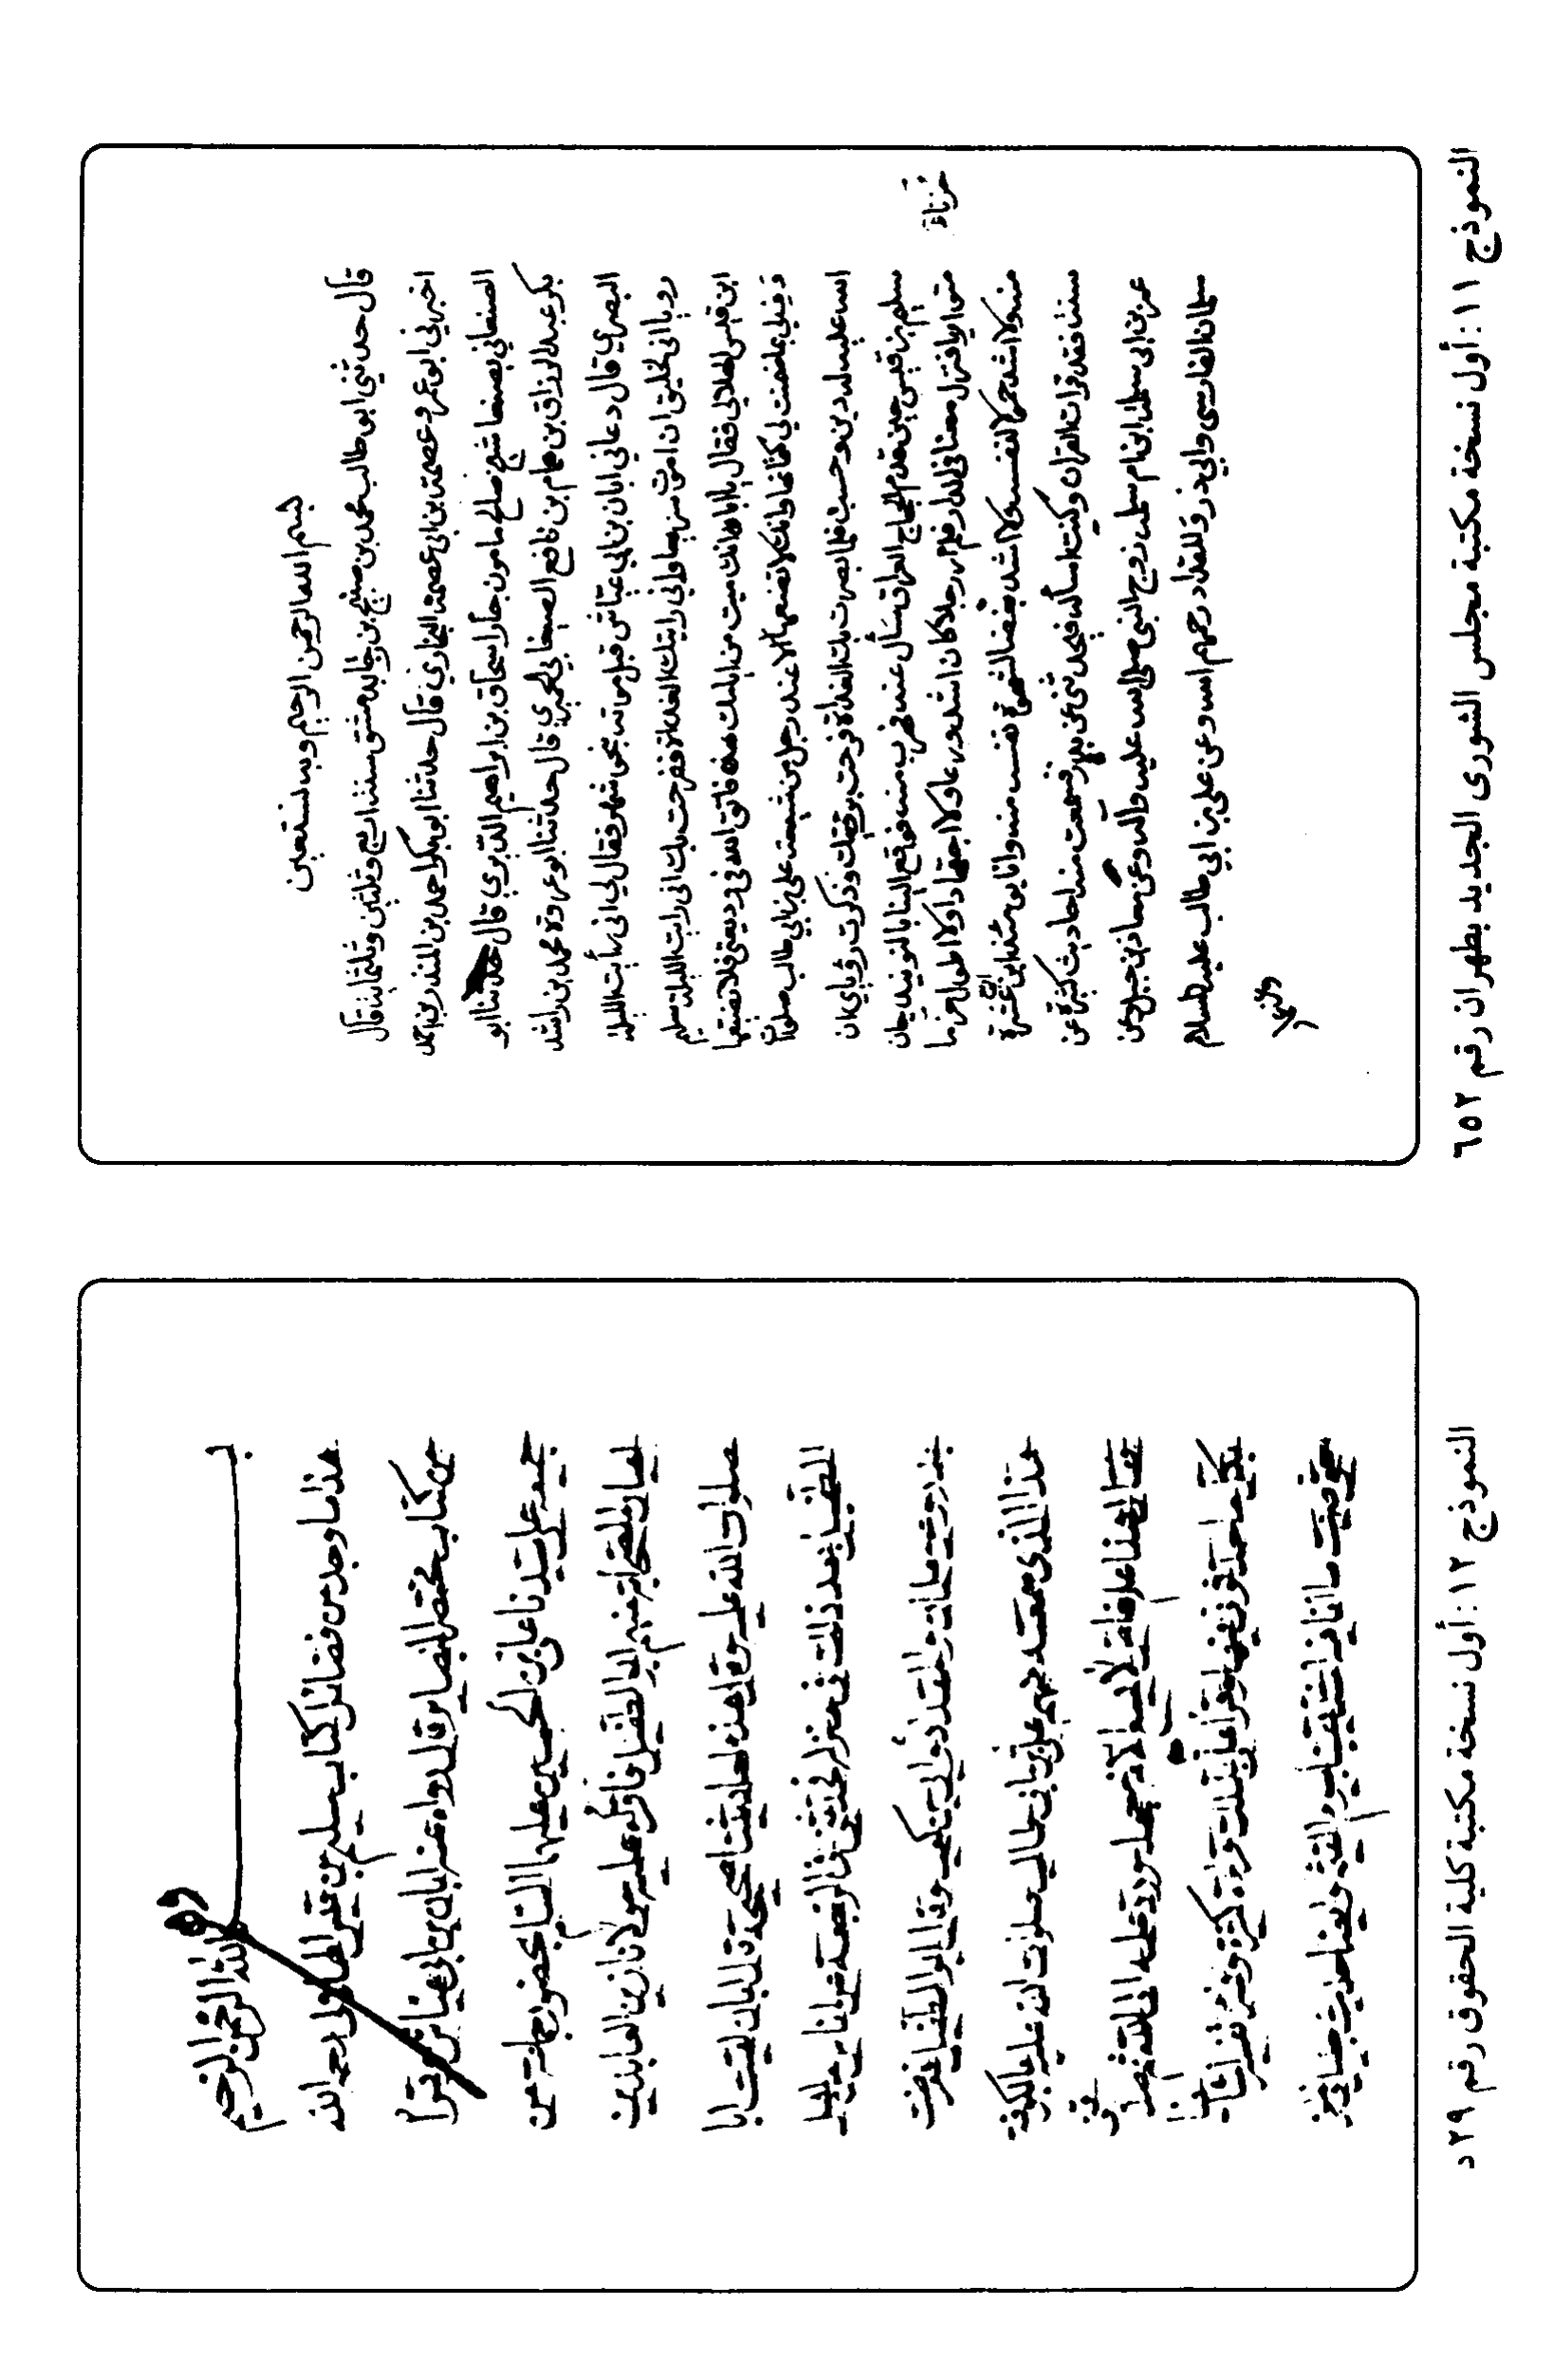 بسم الله الرحمن الرحيم وبه نستعين
قال حدثني ابو طالب محمد بن صبيح بن رجا بدمشق سنة اربع وثلثين وثلثمائة قال
اخبرني ابو عمرو عصمة بن ابي عصمة البخاري قال حدثنا ابو بكر احمد بن المنذر بن احمد
الصنعاني بصنعا شيخ صالح مامون جار اسحاق بن ابراهيم الدبري قال حدثنا ابو
بكر عبد الرزاق بن همام بن نافع الصنعاني الحميري قال حدثنا ابو عروة محمد بن راشد
البصري قال دعاني ابان بن ابي عياش قبل موته بنحو شهر فقال لي اني رأيت الليلة
رويا اني لخليق ان اموت سريعا واني رايتك الغداة ففرحت بك اني رايت الليلة سليم
ابن قيس الهلالي فقال يا ابان انك ميت من ايامك هذه فاتق الله في وديعتي فلا تضيعها
وف لي بما ضمنت لي كتمانها وانك لا تضعها الا عند رجل من شيعة علي بن ابي طالب صلوات
الله عليه له دين وحسب فلما بصرت بك الغداة فرحت برؤيتك وذكرت رؤياي ان
سليم بن قيس حين قدم الحجاج العراق سأل عنه فهرب منه فوقع الينا بالنوبندجان
متواريا فنزل معنا في الدار فلم ار رجلا كان اشد ورعا ولا اجتهادا ولا اطول حزنا
منه ولا اشد خمولا لنفسه ولا اشد بغضا لشهرة نفسه منه وانا يومئذ ابن عشرة
سنة فقد قرات القران وكنت اساله فيحدثني عن بدر فسمعت منه احاديث كثيرة عن
عمر بن ابي سلمة ابن ام سلمة زوج النبي صلى الله عليه وآله وعن معاذ بن جبل وعن
سلمان الفارسي وابي ذر والمقداد رحمهم الله وعن علي بن ابي طالب عليه السلام
النموذج ١١: أول نسخة مكتبة مجلس الشورى الجديد بطهران رقم ٦٥٢
بسم الله الرحمن الرحيم
هذا ما وجد من فضائل كتاب سليم بن قيس الهلالي رحمه الله
من كتاب مختصر البصاير قال رواه عنه ابان بن ابي عياش وقرأ
جميعه على سيدنا علي بن الحسين عليهما السلام بحضور جماعة من
اعيان الصحابة منهم ابو الطفيل فاقره عليه مولانا زين العابدين
صلوات الله عليه وقال هذه احاديثنا صحيحة قال ابان لقيت ابا
الطفيل بعد ذلك في منزله فحدثني في الرجعة عن اناس من اهل
بدر وعن سلمان والمقداد وابي بن كعب وقال ابو الطفيل فعرضت
هذا الذي سمعته منهم على علي بن ابي طالب صلوات الله عليه بالكوفة
النموذج ١٢: أول نسخة مكتبة كلية الحقوق رقم ٢٩د